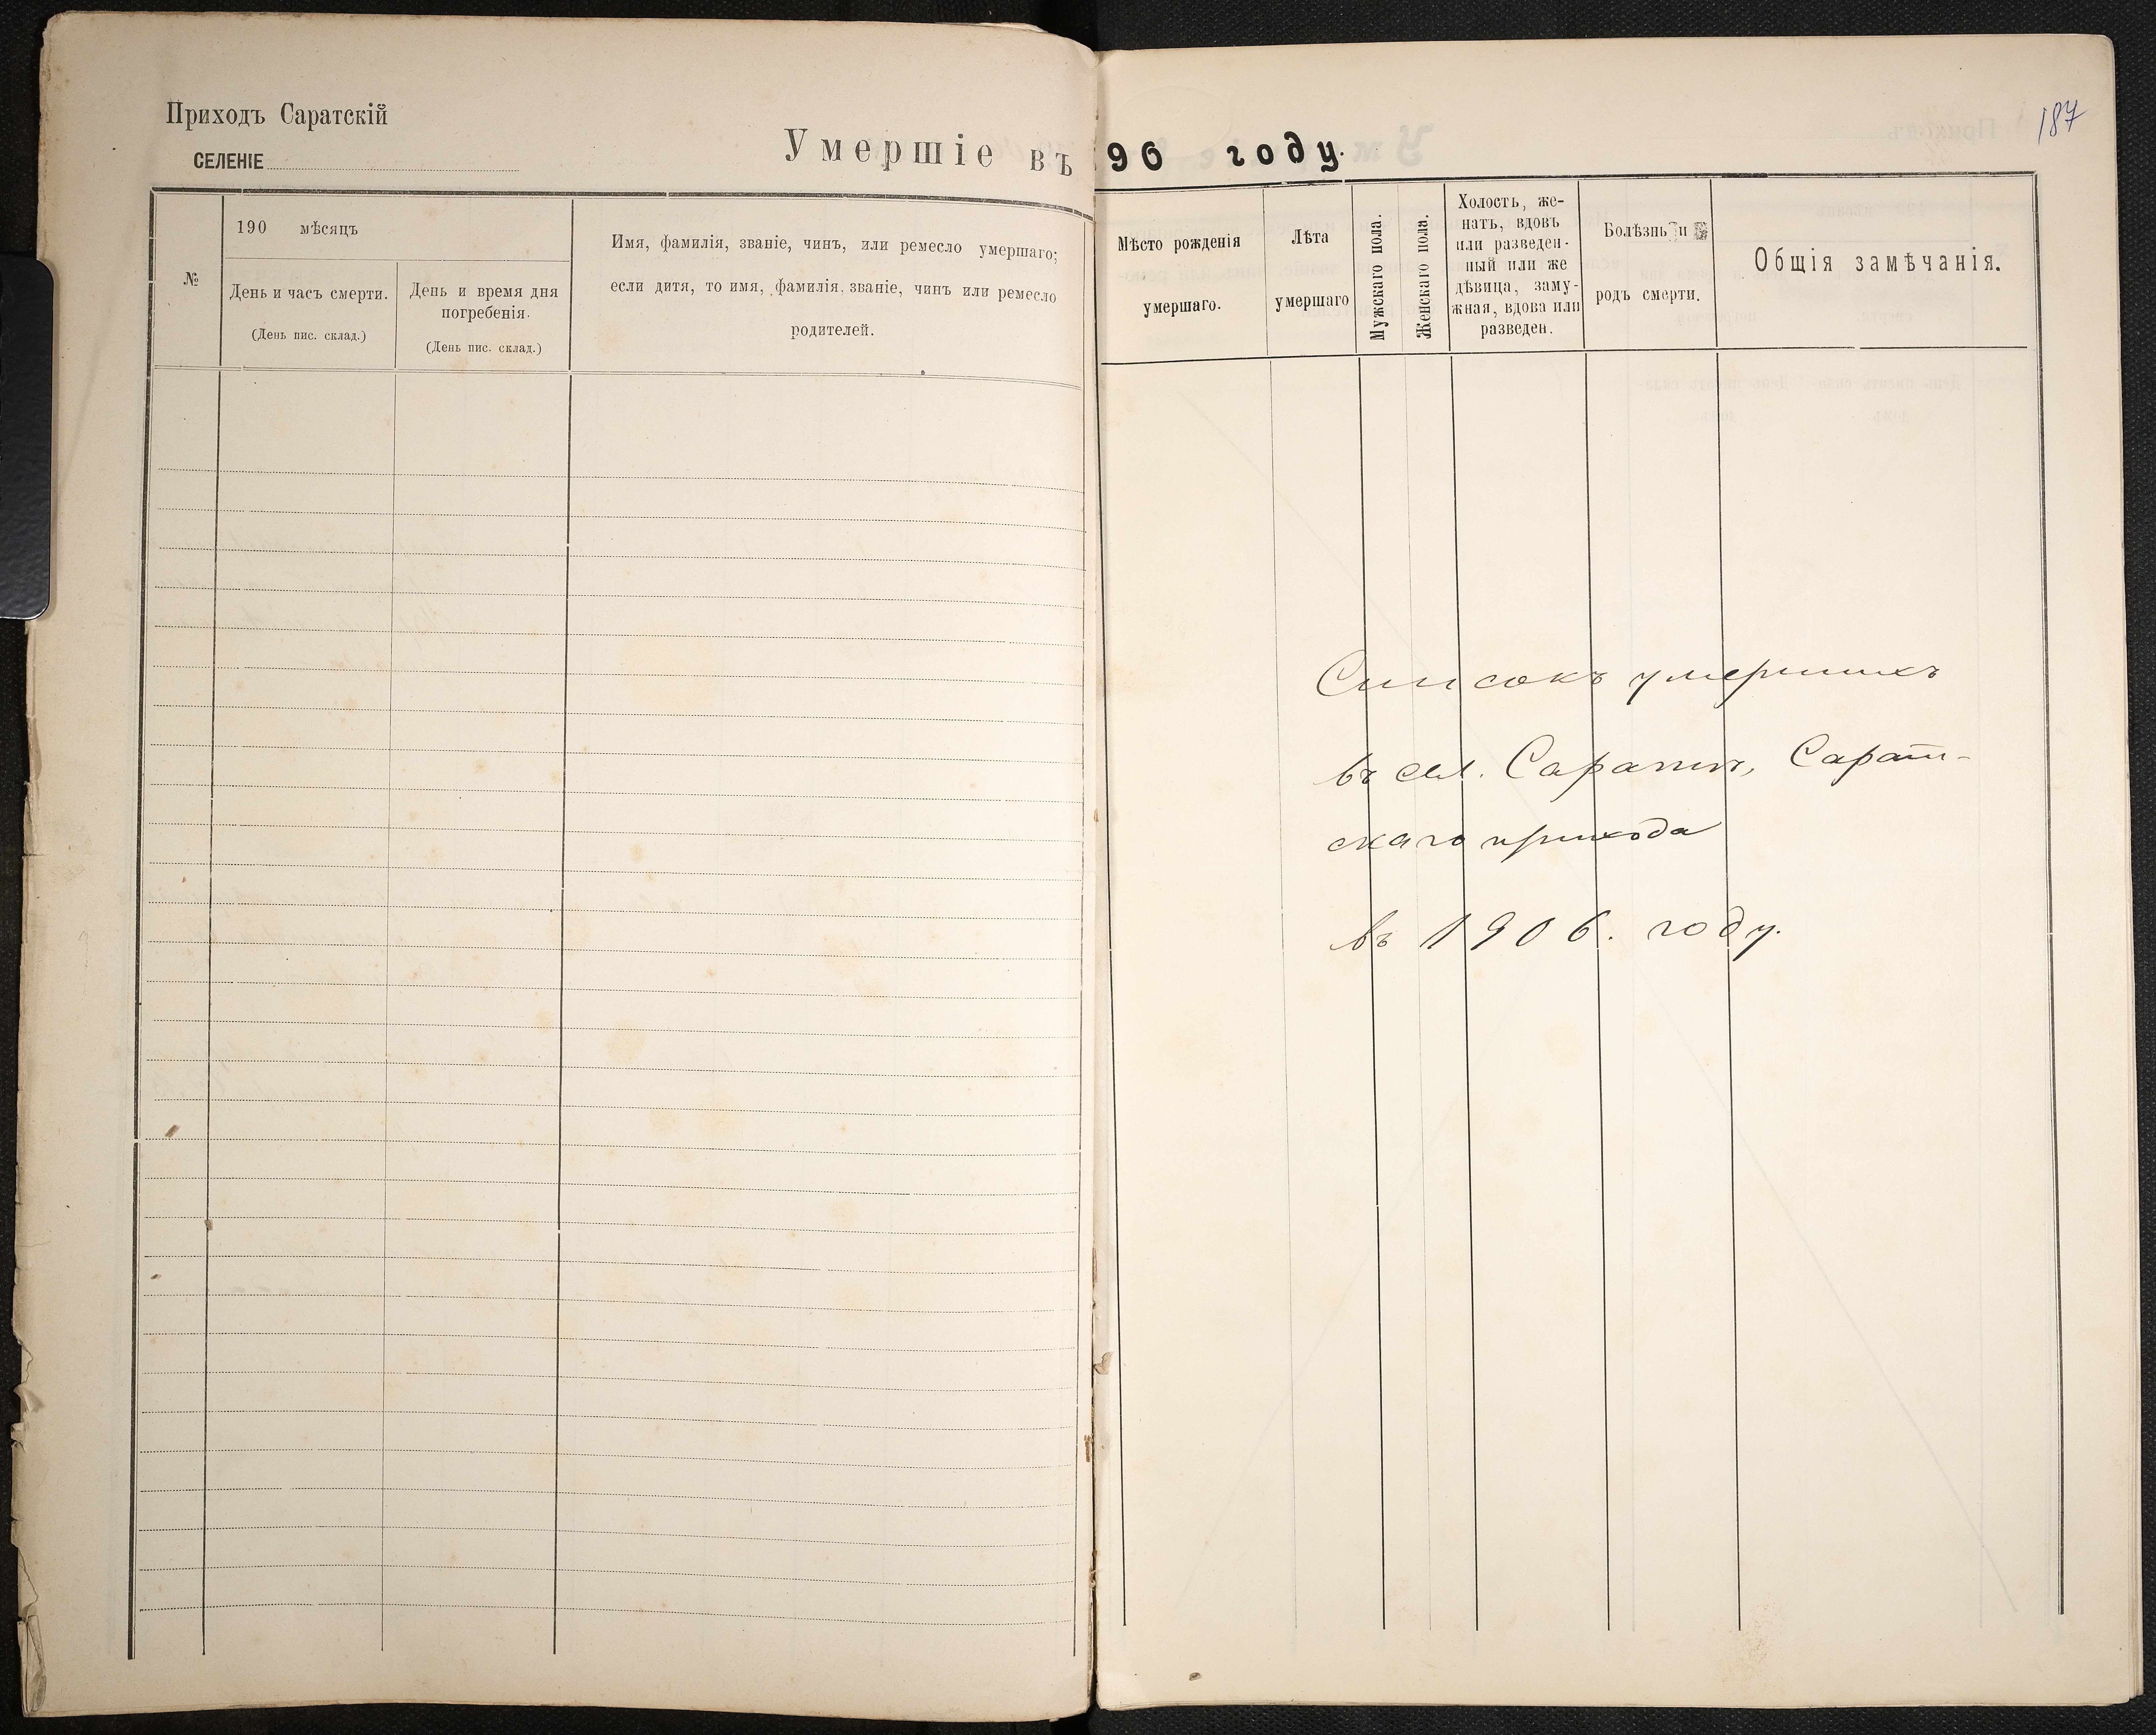 Приходъ Саратскій
СЕЛЕНІЕ
Умершіе въ 190 году.
187
№
190 мѣсяцъ
День и часъ смерти.
(День пис. склад.)
День и время дня
погребенія.
(День пис. склад.)
Имя, фамилія, званіе, чинъ, или ремесло умершаго;
если дитя, то имя, фамилія, званіе, чинъ или ремесло
родителей.
Мѣсто рожденія
умершаго.
Лѣта
умершаго
Мужскаго пола.
Женскаго пола.
Холостъ, же-
натъ, вдовъ
или разведен-
ный или же
дѣвица, заму-
жная, вдова или
разведен.
Болѣзнь и
родъ смерти.
Общія замѣчанія.
Списокъ умершихъ
въ сел. Саратѣ, Сарат-
скаго прихода
въ 1906. году.